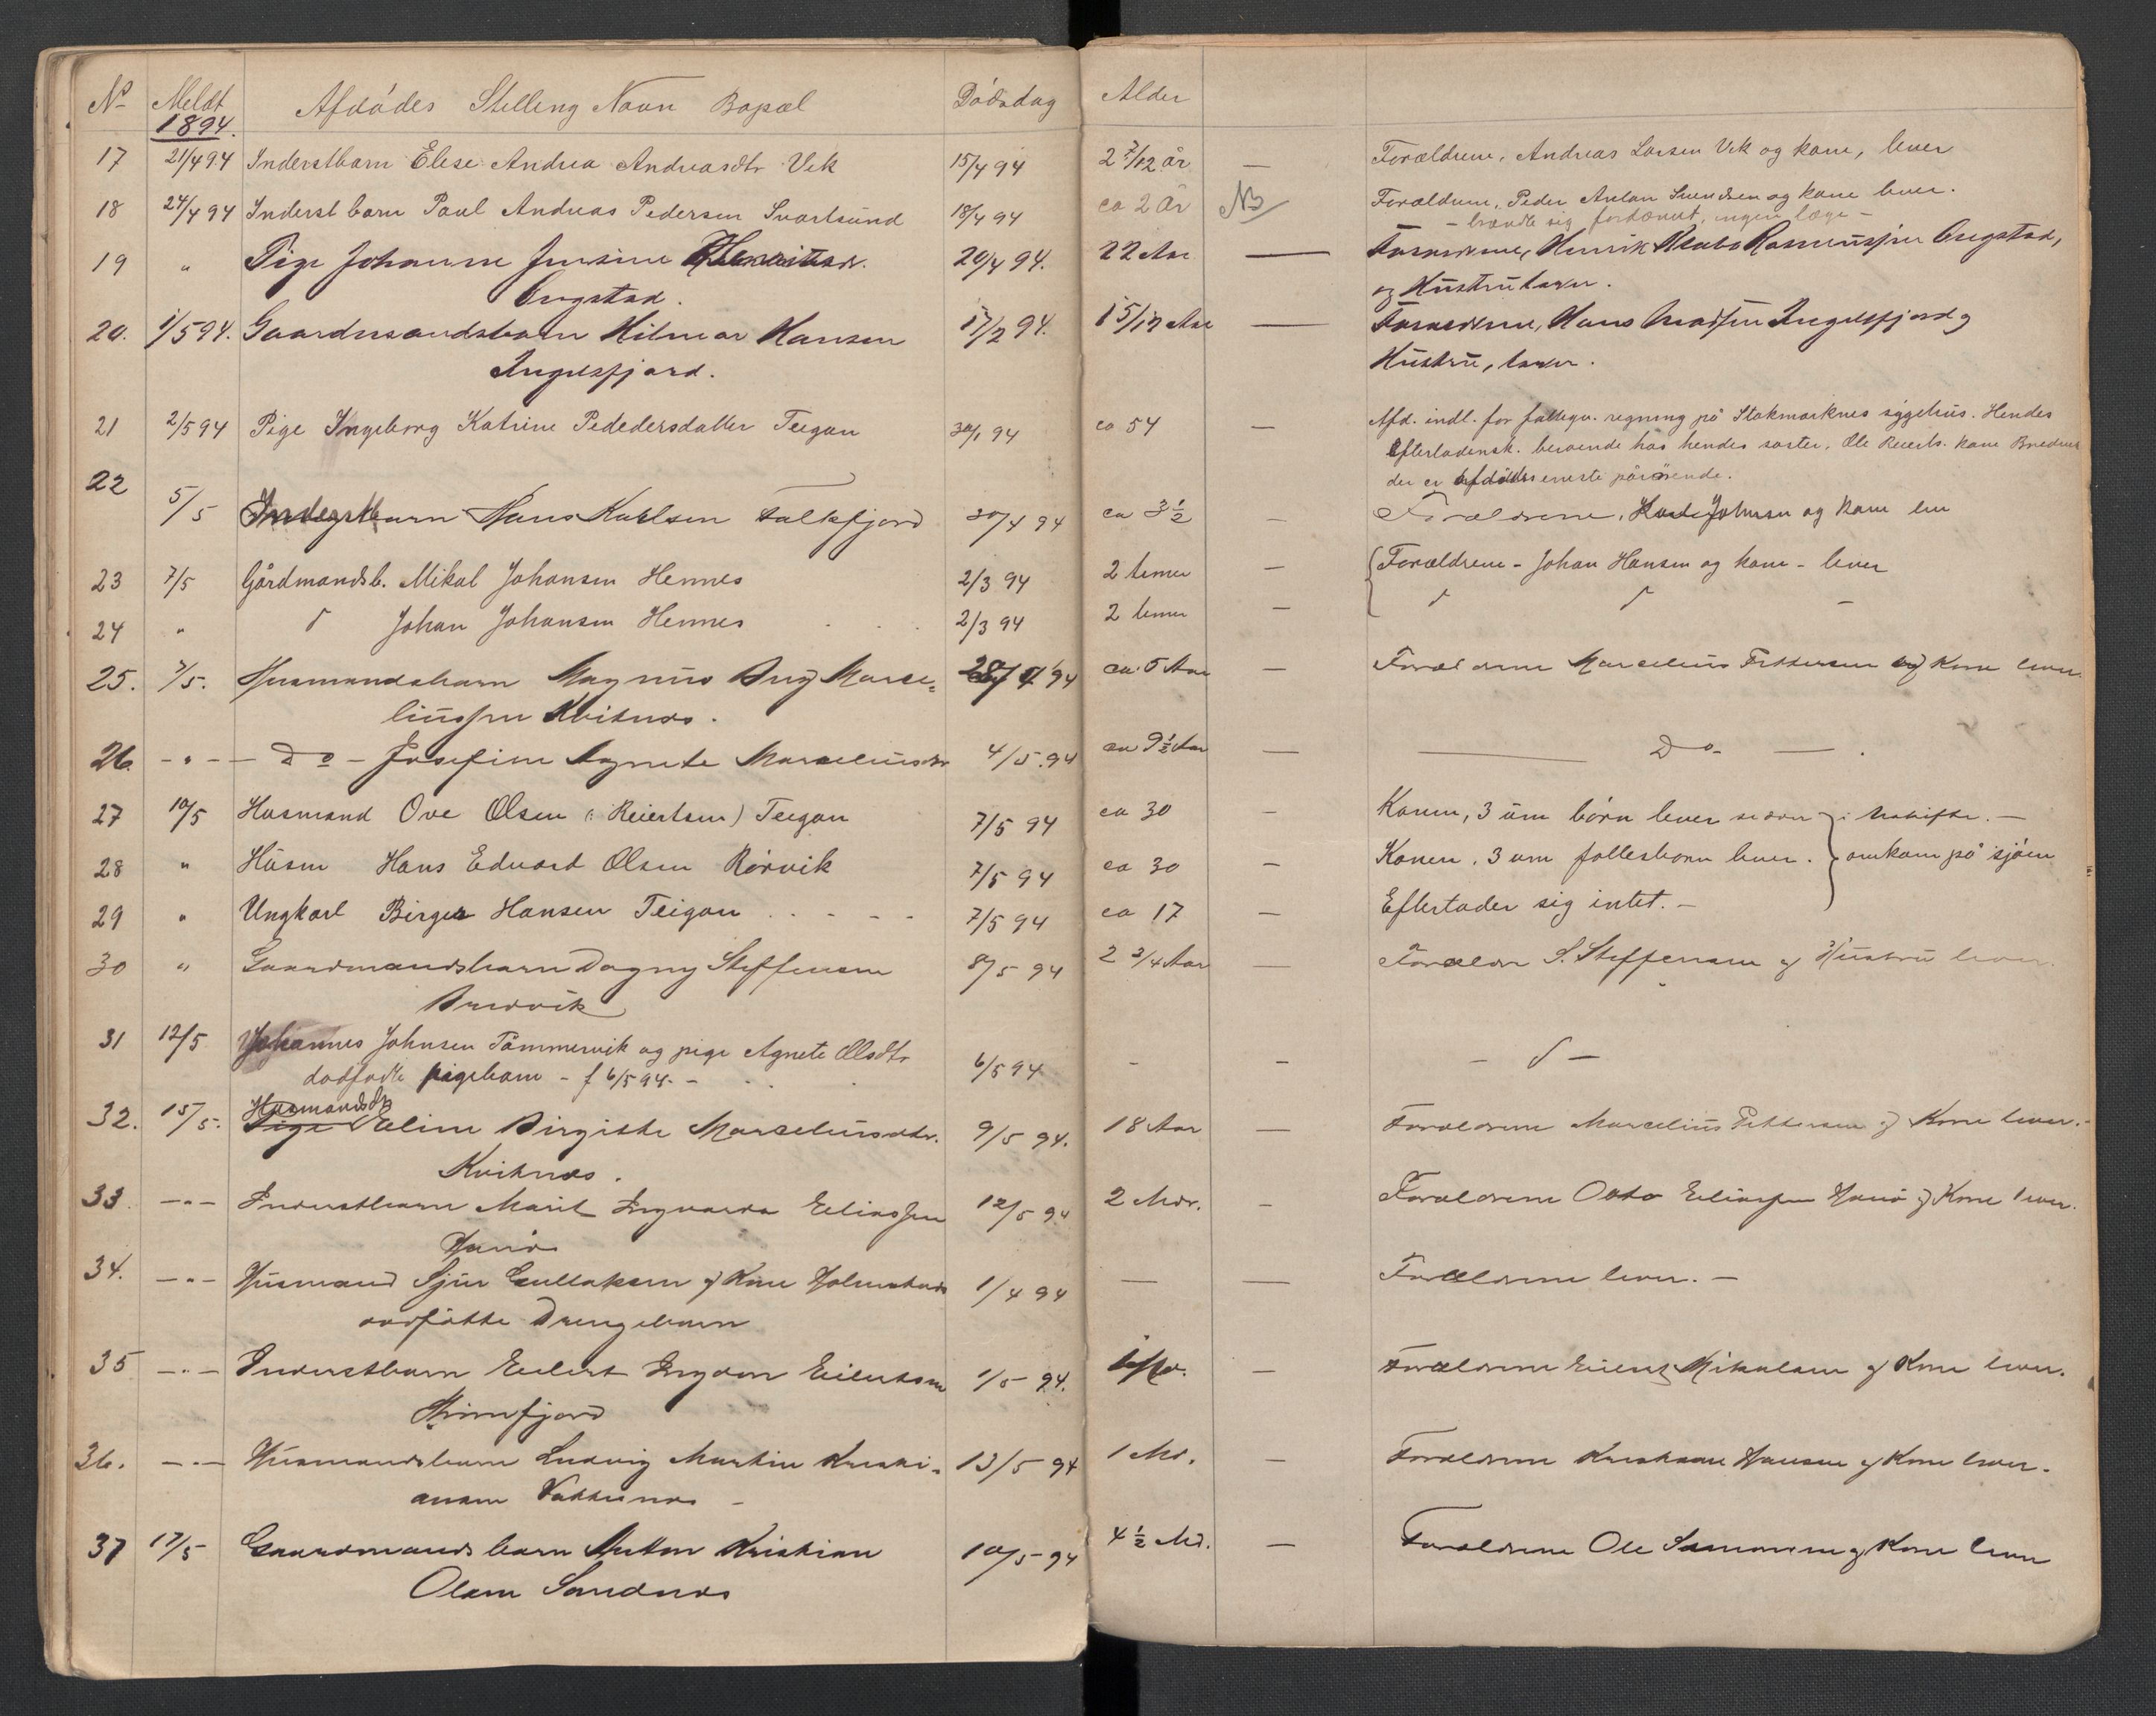 No Meldt Afdødes Stilling Navn Bopæl Dødsdag Alder
1894.
17 21/4 94 Inderstbarn Elise Andrea Andreasdtr Vik 15/4 94 2 7/12 år — Forældrene, Andreas Larsen Vik og kone, lever
18 24/4 94 Inderstbarn Paul Andreas Pedersen Svartsund 18/4 94 ca 2 År NB Forældrene, Peder Antan Svendsen og kone lever.
- brændte sig fordærvet, ingen læge -
19 " Pige Johanne Jensine 20/4 94. 22 Aar — Forældrene, Henrik Rasmussen Ongstad,
Ongstad. og Hustru lever.
20. 1/5 94. Gaardmandsbarn Hilmar Hansen 17/2 94. 1 5/12 Aar — Forældrene, Hans Ingelsfjord og
Ingelsfjord. Hustru, lever.
21 2/5 94 Pige Ingeborg Katrine Pededersdatter Teigan 30/1 94 ca 54 — Afd. indl. for fattigv. regning på Stokmarknes sygehus. Hendes
Efterladensk. beroende hos hendes søster, Ole Reierts. kone
der er afdødes eneste pårørende.
22 5/5 Inderstbarn Hans Karlsen Falkfjord 30/4 94 ca 3½ — Forældrene, Johnsen og kone lever
23 7/5 Gårdmandsb. Mikal Johansen Hennes 2/3 94 2 timer — Forældrene - Johan Hansen og kone - lever
24 " d Johan Johansen Hennes 2/3 94 2 timer — d d —
25. 7/5. Husmandsbarn Magnus Aug Marse= 28/4 94 ca 5 Aar — Forældrene Marcelius Pettersen og Kone lever.
liussen Kvitnes.
26. - " - - Do - Josefine Agnete Marcelius dtr 4/5 94 ca 9½ Aar — Do — .
27 10/5 Husmand Ove Olsen (: Reiertsen) Teigan 7/5 94 ca 30 — Konen, 3 um børn lever
28 " Husm Hans Edvard Olsen Rørvik 7/5 94 ca 30 — Konen, 3 um fællesbørn lever. omkom på sjøen
29 " Ungkarl Birger Hansen Teigan 7/5 94 ca 17 — Efterlader sig intet. -
30 " Gaardmandsbarn Dagny Steffensen 8/5 94 2 3/4 Aar — Forældre S. Steffensen og Hustru lever.
Bredvik
31 12/5 Johannes Johnsen Tømmervik og pige Agnete Olsdtr 6/5 94 - - - d -
dødfødte pigebarn - f 6/5 94 -
Husmandsdtr
32. 15/5. Pige Eline Birgitte Marceliusdtr. 9/5 94. 18 Aar — Forældrene Marcelius Pettersen og Kone lever.
Kvitnes.
33. - " - Inderstbarn Marit Ingvarda Eliassen 12/5 94 2 Mdr. — Forældrene Otto Eliassen Hanø og Kone lever.
Hanø
34. - " - Husmand Sjur Gullaksen og Kone 1/4 94 — — Forældrene lever. -
dødfødte Drengebarn
35 - " - Inderstbarn Eilert Eilertsen 1/5 94. — Forældrene Eilert Mikalsen og Kone lever.
36. - " - Husmandsbarn Ludvig Martin Kristi= 13/5 94 1 Md. — Forældrene Kristian Hansen og Kone lever.
ansen
37 17/5 Gaardmandsbarn Anton Kristian 10/5 94 4½ Md. — Forældrene Ole og Kone lever
Olsen Sandnes